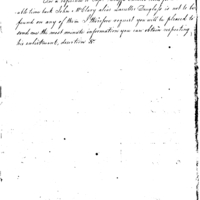 able time back John McClary alias Lavalle Douglass is not to be
found on any of them I therefore request you will be pleased to
send me the most minute information you can obtain respecting
his enlistment, desertion &c